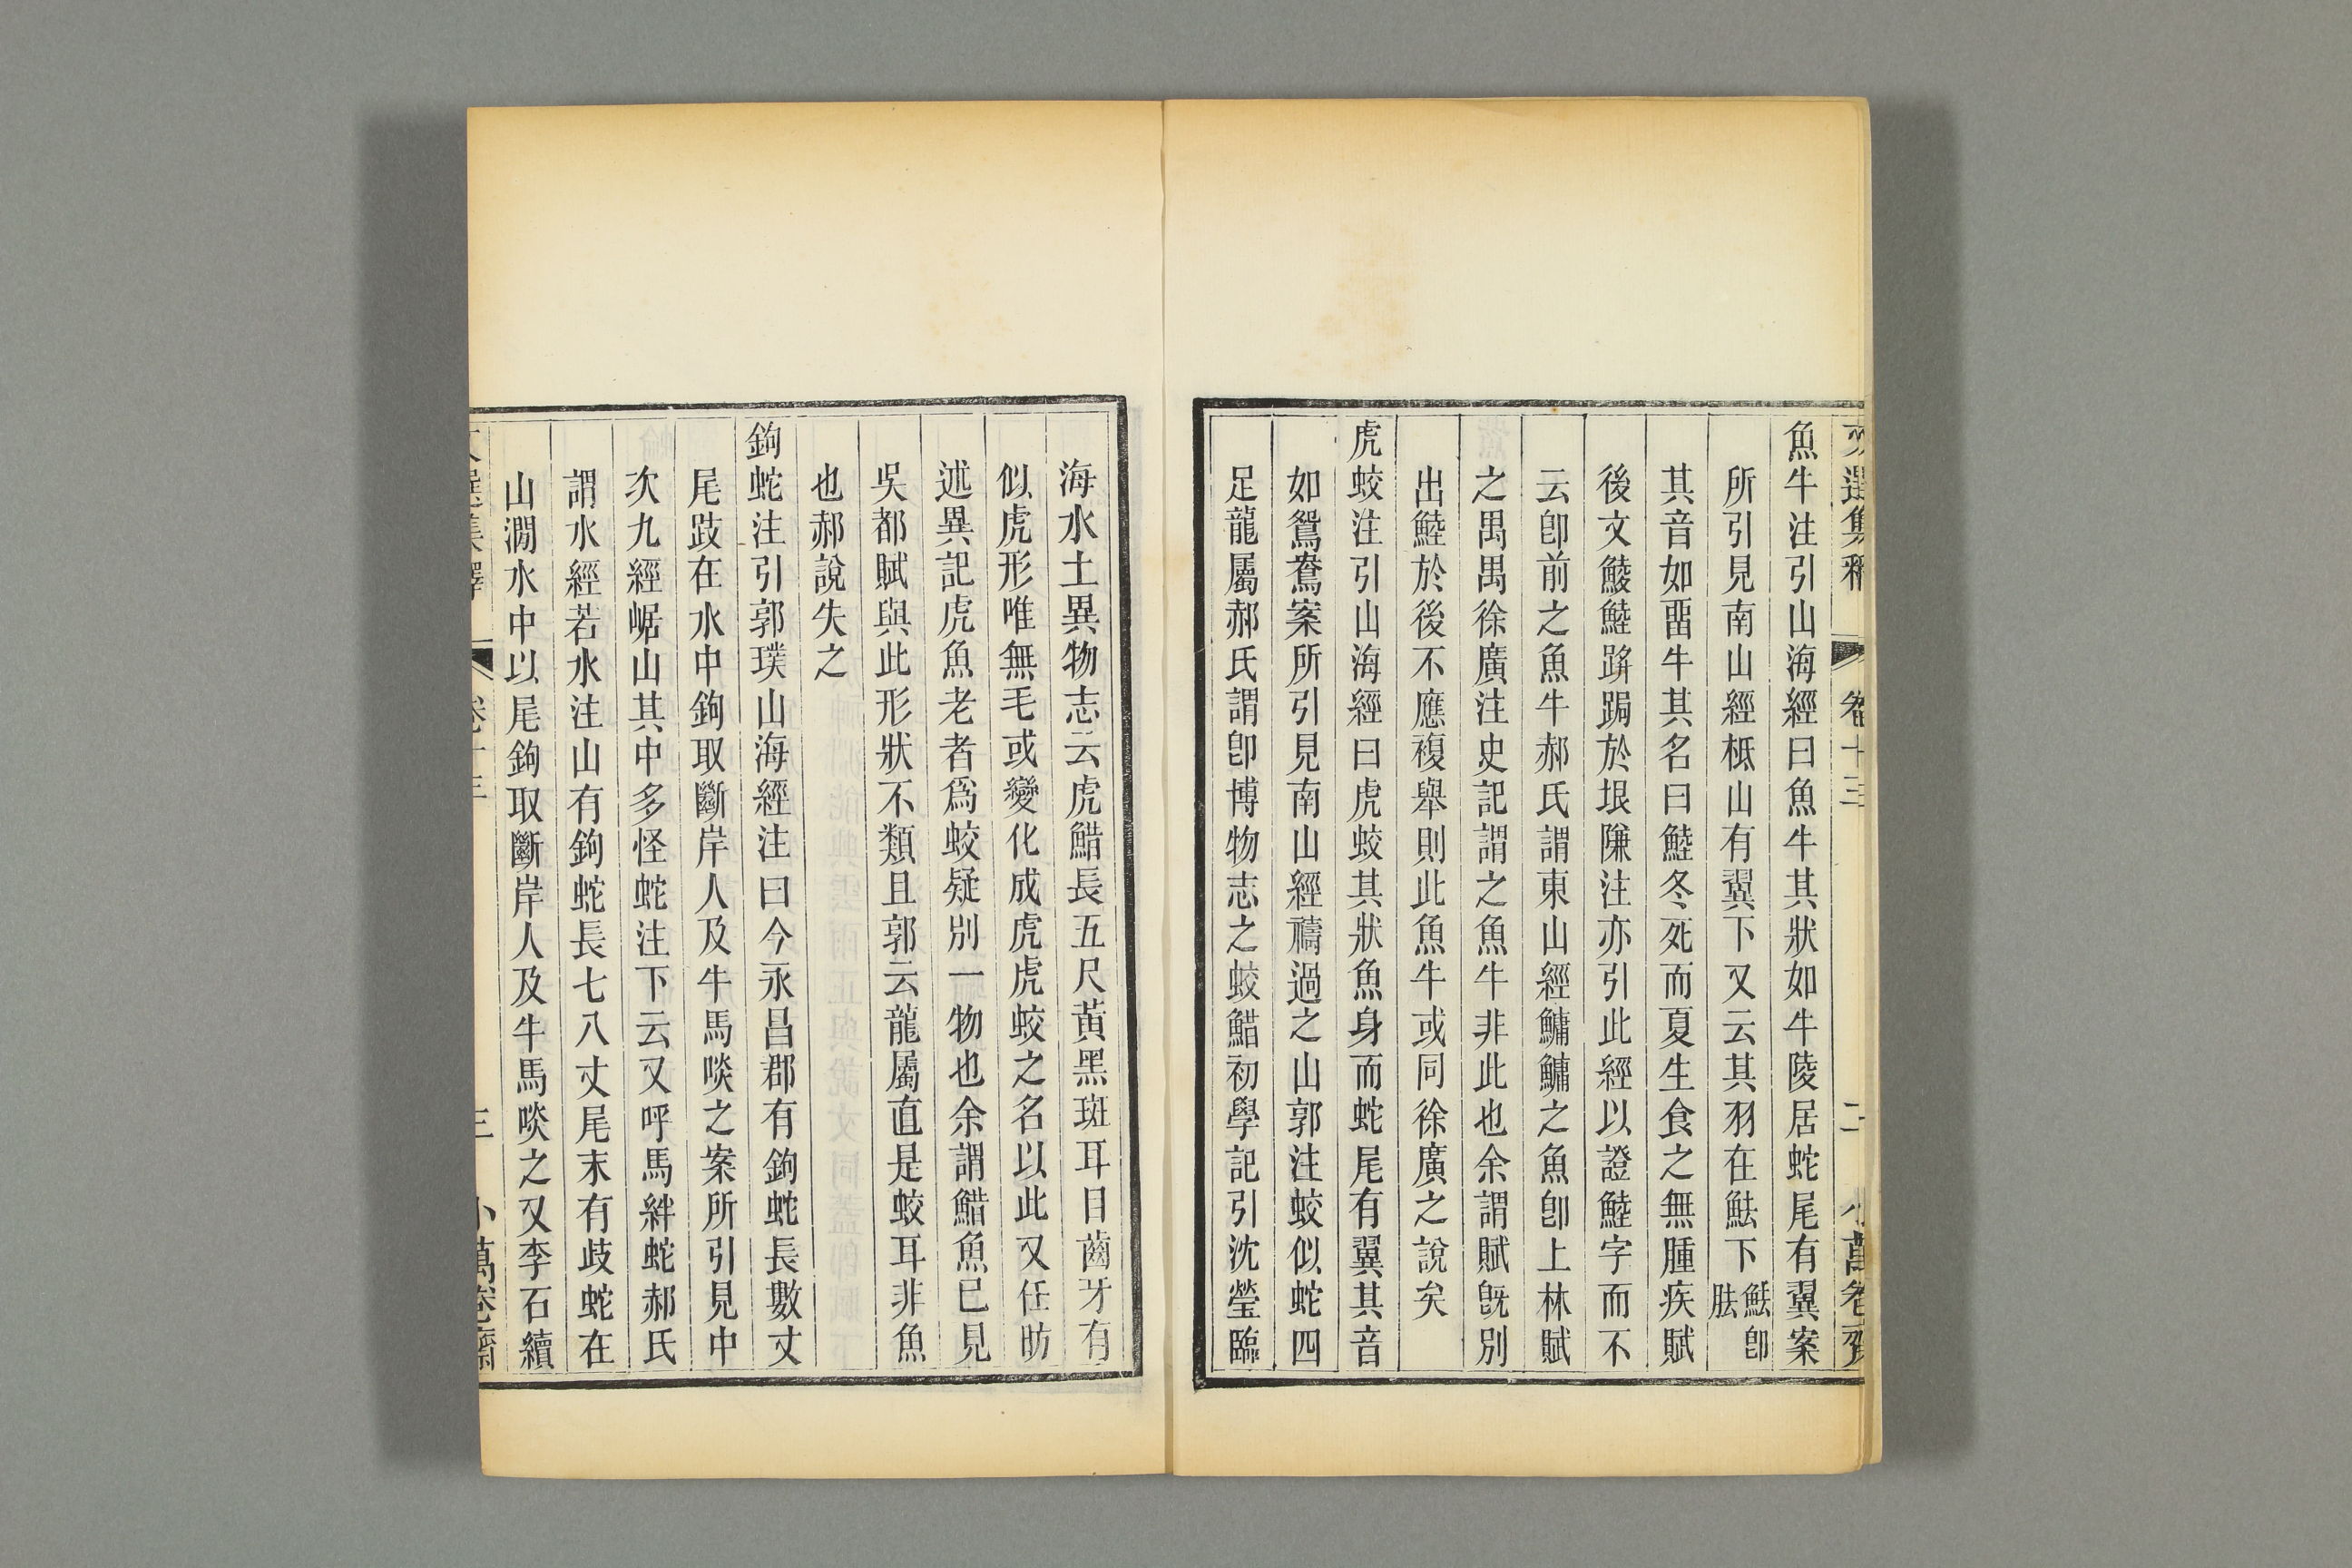 文選集釋 卷十三 二 小萬卷齋
魚牛注引山海經曰魚牛其狀如牛陵居蛇尾有翼案
所引見南山經柢山有翼下又云其羽在魼下魼卽胠
其音如畱牛其名曰鯥冬死而夏生食之無腫疾賦
後文鯪鯥踦䠇於垠隒注亦引此經以證鯥字而不
云卽前之魚牛郝氏謂東山經鱅鱅之魚卽上林賦
之禺禺徐廣注史記謂之魚牛非此也余謂賦旣別
出鯥於後不應複舉則此魚牛或同徐廣之說矣
虎蛟注引山海經曰虎蛟其狀魚身而蛇尾有翼其音
如鴛鴦案所引見南山經禱過之山郭注蛟似蛇四
足龍屬郝氏謂卽博物志之蛟䱜初學記引沈瑩臨
海水土異物志云虎䱜長五尺黃黑斑耳目齒牙有
似虎形唯無毛或變化成虎虎蛟之名以此又任昉
述異記虎魚老者爲蛟疑別一物也余謂䱜魚已見
吳都賦與此形狀不類且郭云龍屬直是蛟耳非魚
也郝說失之
鉤蛇注引郭璞山海經注曰今永昌郡有鉤蛇長數丈
尾跂在水中鉤取斷岸人及牛馬啖之案所引見中
次九經崌山其中多怪蛇注下云又呼馬絆蛇郝氏
謂水經若水注山有鉤蛇長七八丈尾末有歧蛇在
山澗水中以尾鉤取斷岸人及牛馬啖之又李石續
文選集釋 卷十三 三 小萬卷齋